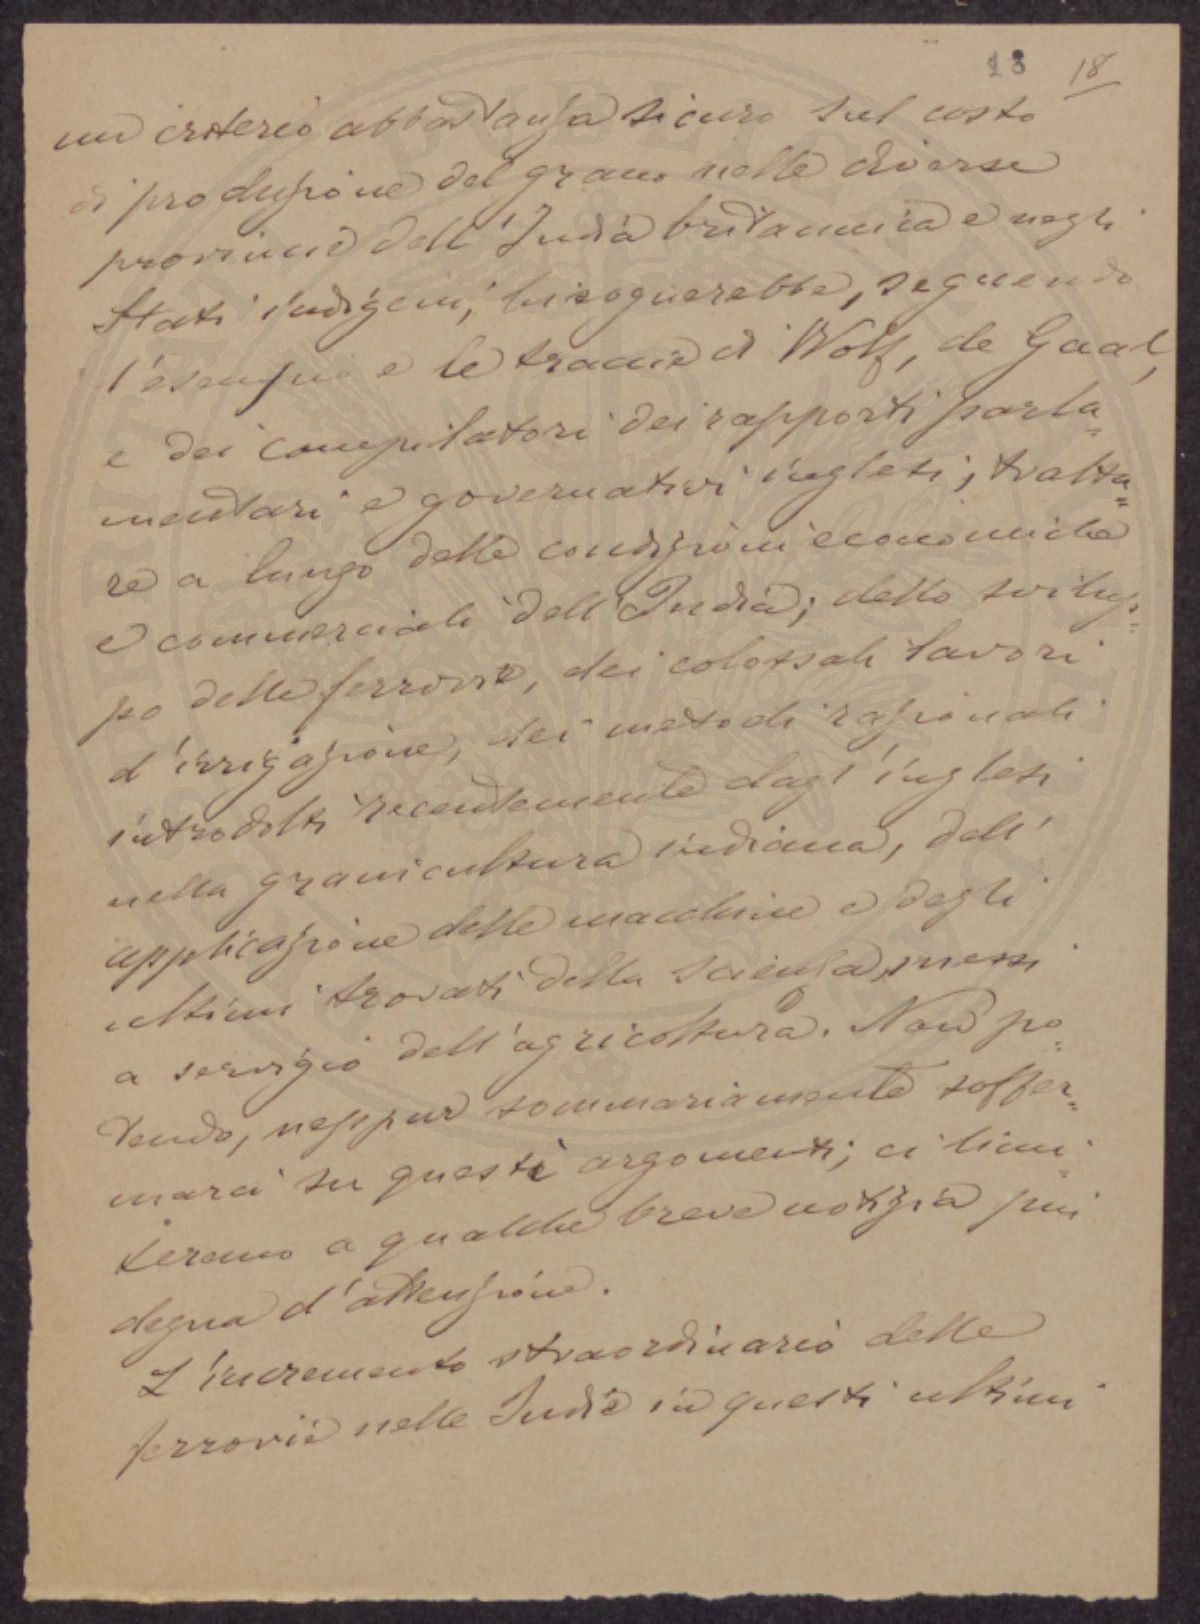 18 18
un criterio abbastanza sicuro sul costo
di produzione del grano nelle diverse
provincie dell'India britannica e negli
Stati indigeni, bisognerebbe, seguendo
l'esempio e le traccie di Wolf, de Gaal,
e dei compilatori dei rapporti parla=
mentari e governativi inglesi, tratta=
re a lungo delle condizioni economiche
e commerciali dell'India; dello svilup=
po delle ferrovie, dei colossali lavori
d'irrigazione, dei metodi razionali
introdotti recentemente dagl'inglesi
nella granicultura indiana, dell'
applicazione delle macchine e degli
ultimi trovati della scienza, messi
a servizio dell'agricoltura. Non po=
tendo, neppur sommariamente soffer=
marci su questi argomenti; ci limi=
teremo a qualche breve notizia più
degna d'attenzione.
L'incremento straordinario delle
ferrovie nelle Indie in questi ultimi